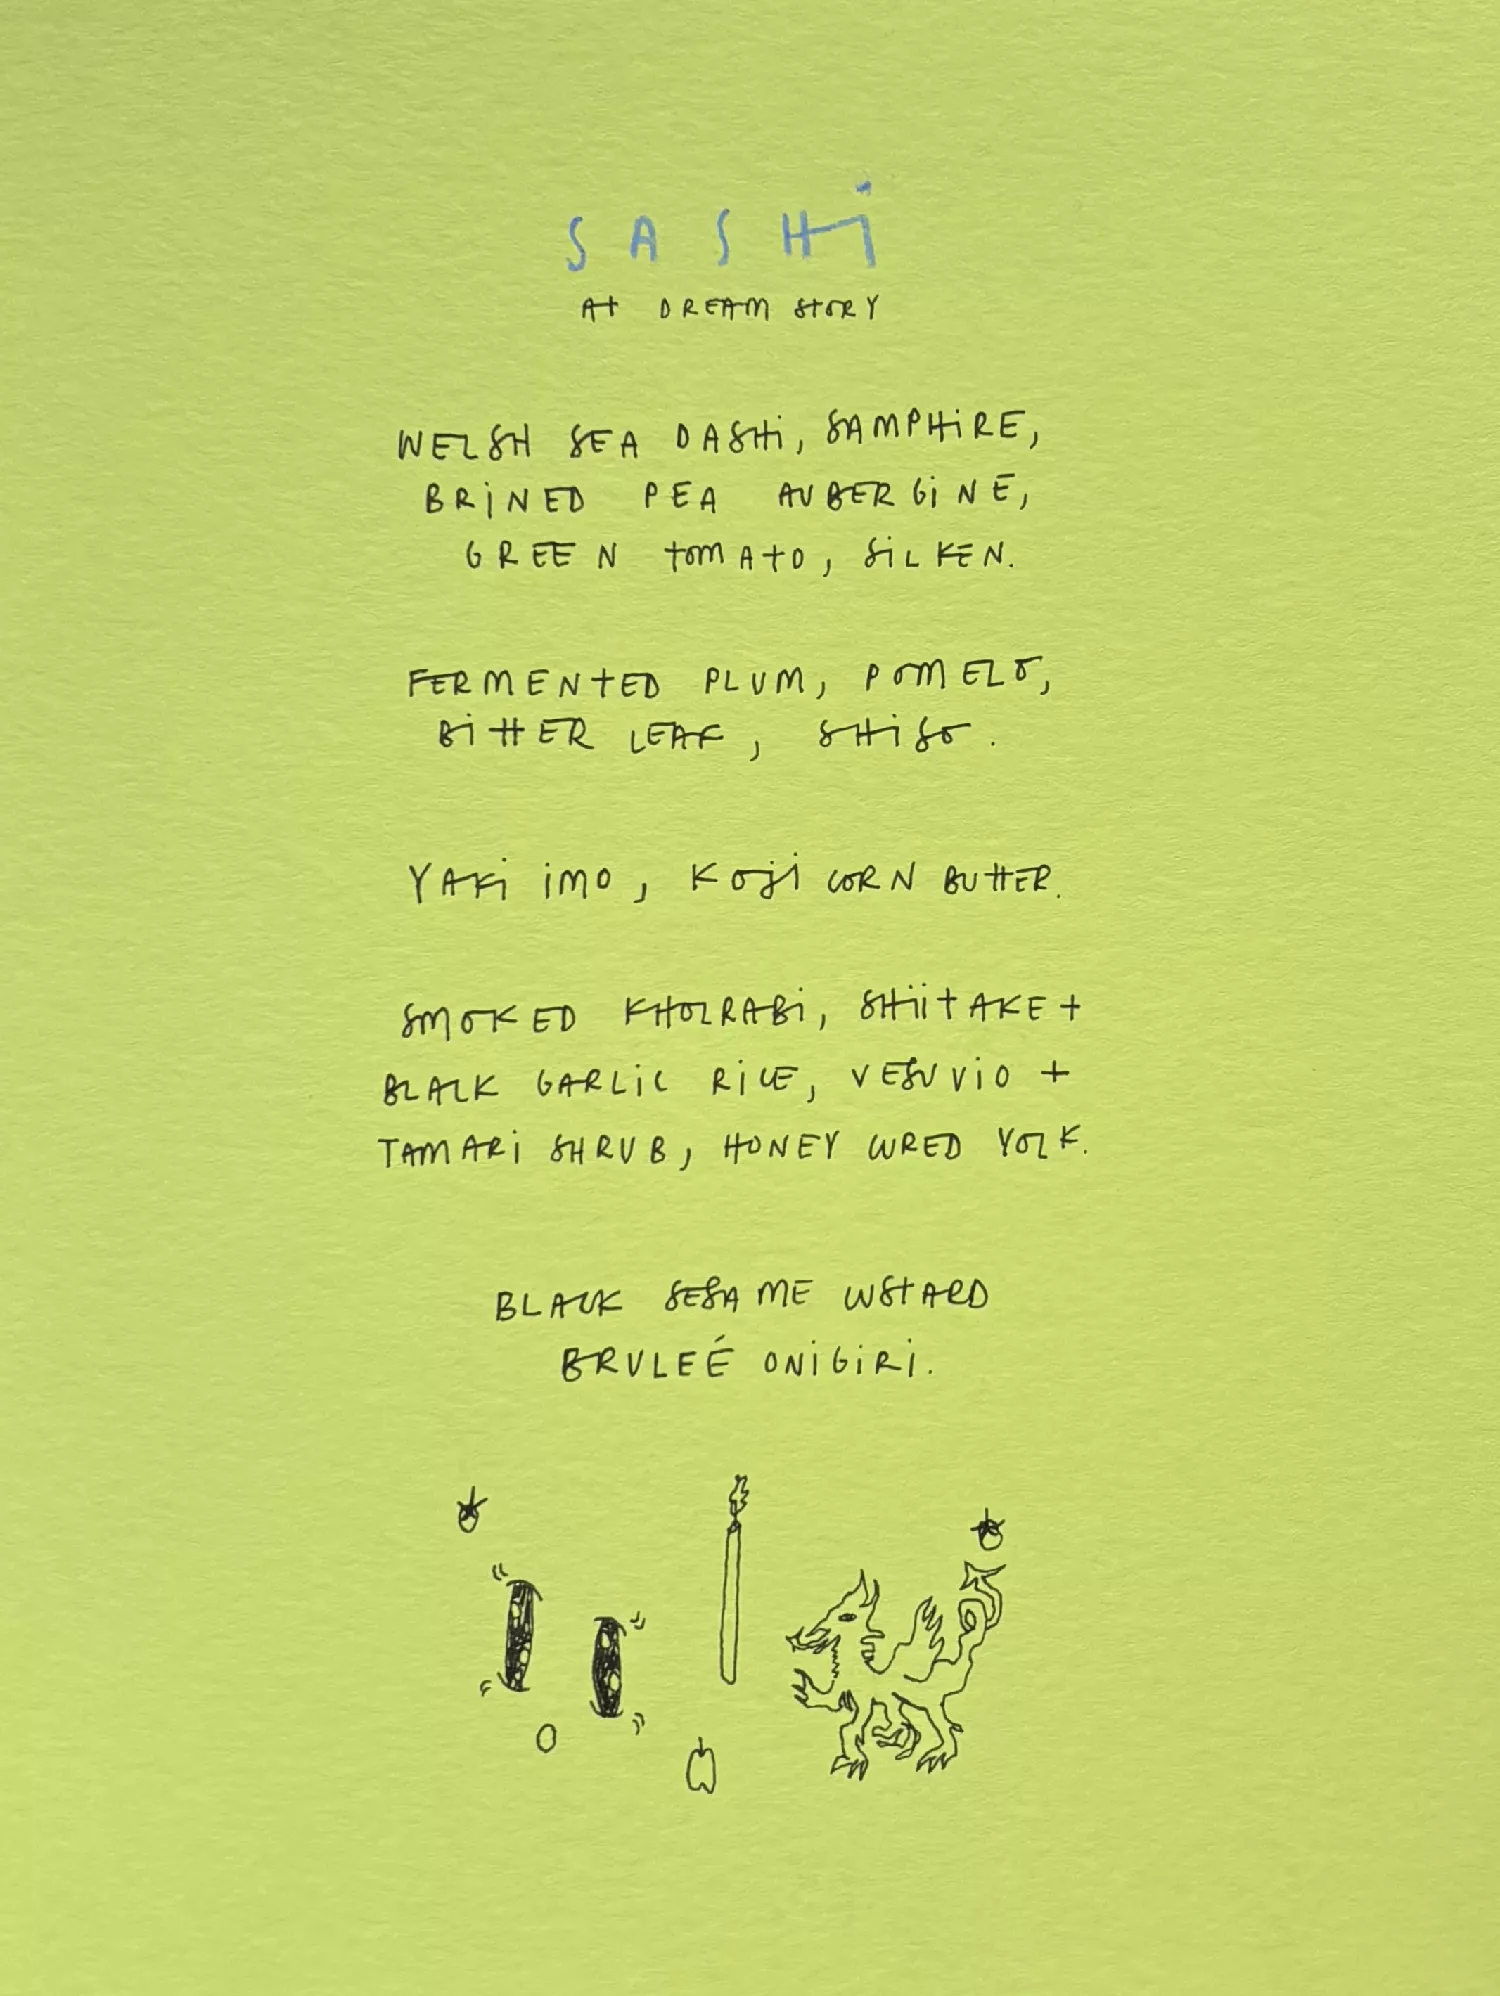 SASHi
At DREAM StORY
WELSH SEA DASHi, SAMPHiRE,
BRiNED PEA AUBERGiNE,
GREEN tOMAtO, SiLKEN.
FERMENtED PLUM, POMELO,
BittER LEAF, SHiSO.
YAKi iMO, KOji CORN BUttER.
SMOKED KHOLRABi, SHiitAKE +
BLACK GARLiC RiCE, VESUViO +
TAMARi SHRUB, HONEY CURED YOLK.
BLACK SESAME CUStARD
BRULEÉ ONiGiRi.